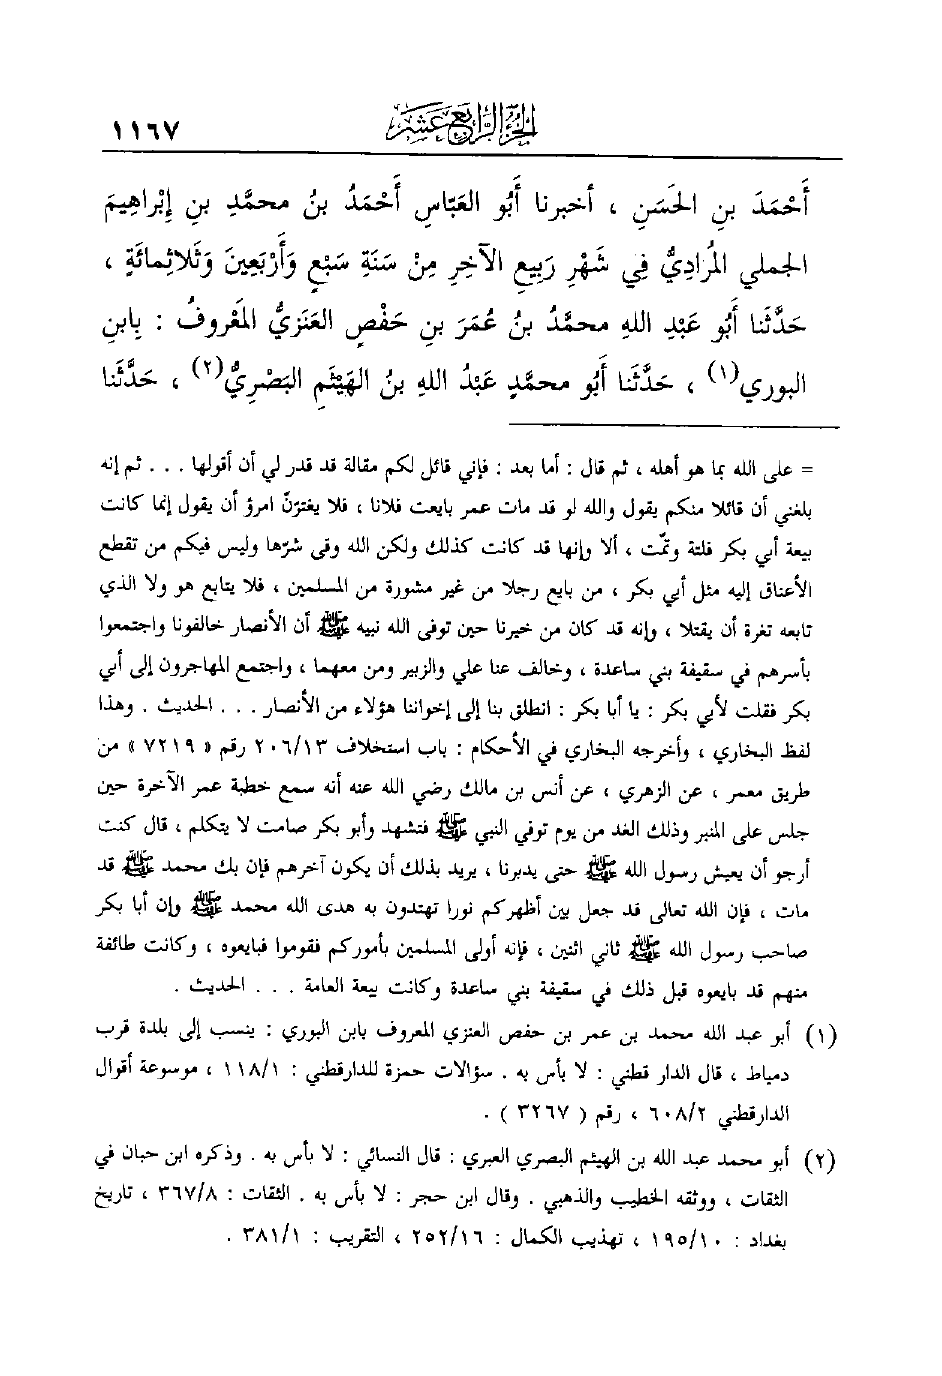 الجزء الرابع عشر ١١٦٧
أَحْمَدَ بنِ الحَسَنِ ، أخبرنا أَبُو العَبّاسِ أَحْمَدُ بنُ محمَّدِ بنِ إِبْراهِيمَ
الجملي المُرَادِيُّ فِي شَهْرِ رَبِيعِ الآخِرِ مِنْ سَنَةِ سَبْعٍ وَأَرْبَعِينَ وَثَلاثِمائَةٍ ،
حَدَّثَنا أَبُو عَبْدِ اللهِ محمَّدُ بنُ عُمَرَ بنِ حَفْصٍ العَنَزِيُّ المَعْروفُ : بِابنِ
البوري(١) ، حَدَّثَنا أَبُو محمَّدٍ عَبْدُ اللهِ بنُ الهَيْثَمِ البَصْرِيُّ(٢) ، حَدَّثَنا
= على الله بما هو أهله ، ثم قال : أما بعد : فإني قائل لكم مقالة قد قدر لي أن أقولها . . . ثم إنه
بلغني أن قائلا منكم يقول والله لو قد مات عمر بايعت فلانا ، فلا يغترنّ امرؤ أن يقول إنما كانت
بيعة أبي بكر فلتة وتمّت ، ألا وإنها قد كانت كذلك ولكن الله وقى شرّها وليس فيكم من تقطع
الأعناق إليه مثل أبي بكر ، من بايع رجلا من غير مشورة من المسلمين ، فلا يتابع هو ولا الذي
تابعه تغرة أن يقتلا ، وإنه قد كان من خيرنا حين توفى الله نبيه ﷺ أن الأنصار خالفونا واجتمعوا
بأسرهم في سقيفة بني ساعدة ، وخالف عنا علي والزبير ومن معهما ، واجتمع المهاجرون إلى أبي
بكر فقلت لأبي بكر : يا أبا بكر : انطلق بنا إلى إخواننا هؤلاء من الأنصار . . . الحديث . وهذا
لفظ البخاري ، وأخرجه البخاري في الأحكام : باب استخلاف ٢٠٦/١٣ رقم « ٧٢١٩ » من
طريق معمر ، عن الزهري ، عن أنس بن مالك رضي الله عنه أنه سمع خطبة عمر الآخرة حين
جلس على المنبر وذلك الغد من يوم توفي النبي ﷺ فتشهد وأبو بكر صامت لا يتكلم ، قال كنت
أرجو أن يعيش رسول الله ﷺ حتى يدبرنا ، يريد بذلك أن يكون آخرهم فإن بك محمد ﷺ قد
مات ، فإن الله تعالى قد جعل بين أظهركم نورا تهتدون به هدى الله محمد ﷺ وإن أبا بكر
صاحب رسول الله ﷺ ثاني اثنين ، فإنه أولى المسلمين بأموركم فقوموا فبايعوه ، وكانت طائفة
منهم قد بايعوه قبل ذلك في سقيفة بني ساعدة وكانت بيعة العامة . . . الحديث .
(١) أبو عبد الله محمد بن عمر بن حفص العنزي المعروف بابن البوري : ينسب إلى بلدة قرب
دمياط ، قال الدار قطني : لا بأس به . سؤالات حمزة للدارقطني : ١١٨/١ ، موسوعة أقوال
الدارقطني ٦٠٨/٢ ، رقم ( ٣٢٦٧ ) .
(٢) أبو محمد عبد الله بن الهيثم البصري العبري : قال النسائي : لا بأس به . وذكره ابن حبان في
الثقات ، ووثقه الخطيب والذهبي . وقال ابن حجر : لا بأس به . الثقات : ٣٦٧/٨ ، تاريخ
بغداد : ١٩٥/١٠ ، تهذيب الكمال : ٢٥٢/١٦ ، التقريب : ٣٨١/١ .